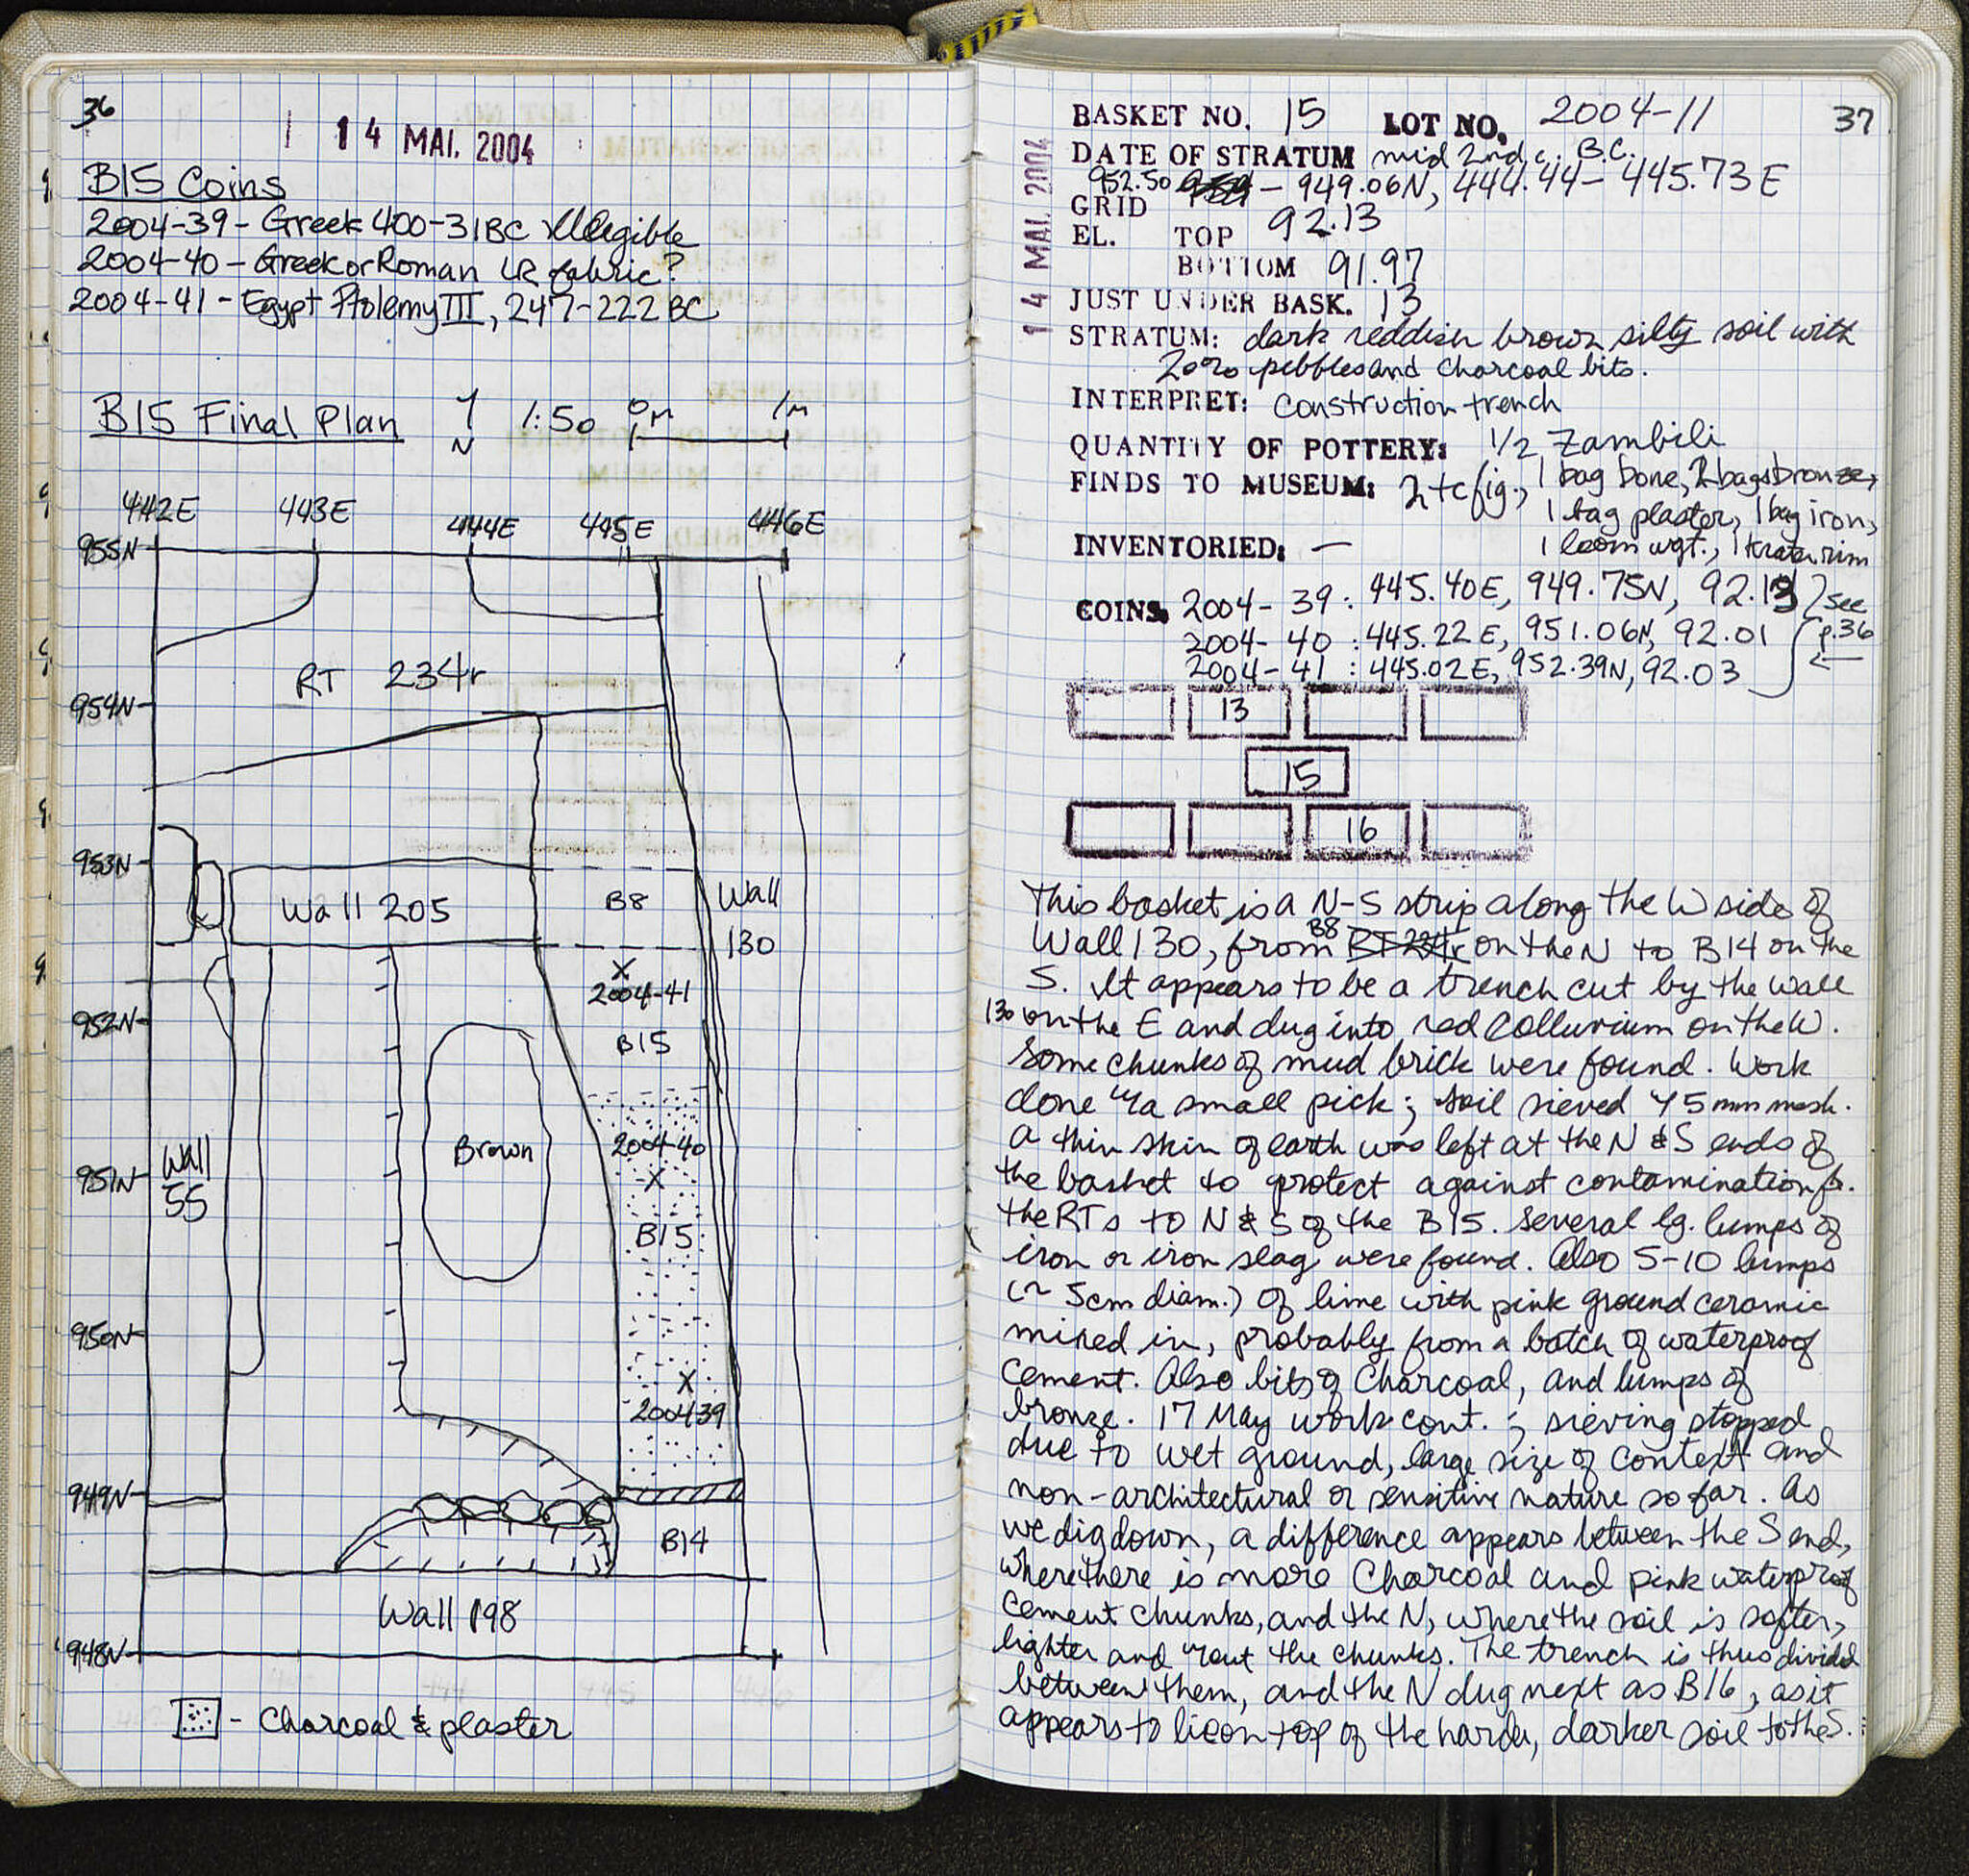 36
14 MAI. 2004
B15 Coins
2004-39 - Greek 400-31BC illegible
2004-40 - Greek or Roman LR fabric?
2004-41 - Egypt Ptolemy III, 247-222 BC
B15 Final Plan N 1:50 0m 1m
442E 443E 444E 445E 446E
955N
RT 234r
954N
953N
Wall 205 B8 Wall
130
X
2004-41
952N
B15
Brown 2004-40
951N Wall X
55
B15
950N
X
200439
949N
B14
Wall 198
948N
- Charcoal & plaster
37
14 MAI. 2004
BASKET NO. 15 LOT NO. 2004-11
DATE OF STRATUM mid 2nd c. B.C.
952.50 - 949.06N, 444.44 - 445.73E
GRID
EL. TOP 92.13
BOTTOM 91.97
JUST UNDER BASK. 13
STRATUM: dark reddish brown silty soil with
20% pebbles and charcoal bits.
INTERPRET: Construction trench
QUANTITY OF POTTERY: 1/2 Zambili
FINDS TO MUSEUM: 2 tc fig., 1 bag bone, 2 bags bronze,
1 bag plaster, 1 bag iron,
INVENTORIED: — 1 loom wgt., 1 krater rim
COINS. 2004-39: 445.40E, 949.75N, 92.13 } see
2004-40 : 445.22E, 951.06N, 92.01 p.36
2004-41 : 445.02E, 952.39N, 92.03 ←
13
15
16
This basket is a N-S strip along the W side of
Wall 130, from B8 RT 234r on the N to B14 on the
S. It appears to be a trench cut by the wall
130 on the E and dug into red colluvium on the W.
Some chunks of mud brick were found. Work
done w/a small pick; soil sieved w/ 5mm mesh.
A thin skin of earth was left at the N & S ends of
the basket to protect against contamination fr.
the RTs to N & S of the B15. Several lg. lumps of
iron or iron slag were found. Also 5-10 lumps
(~ 5cm diam.) of lime with pink ground ceramic
mixed in, probably from a batch of waterproof
cement. Also bits of Charcoal, and lumps of
bronze. 17 May work cont.; sieving stopped
due to wet ground, large size of context and
non-architectural or sensitive nature so far. As
we dig down, a difference appears between the S end,
where there is more Charcoal and pink waterproof
cement chunks, and the N, where the soil is softer,
lighter and w/out the chunks. The trench is thus divided
between them, and the N dug next as B16, as it
appears to lie on top of the harder, darker soil to the S.